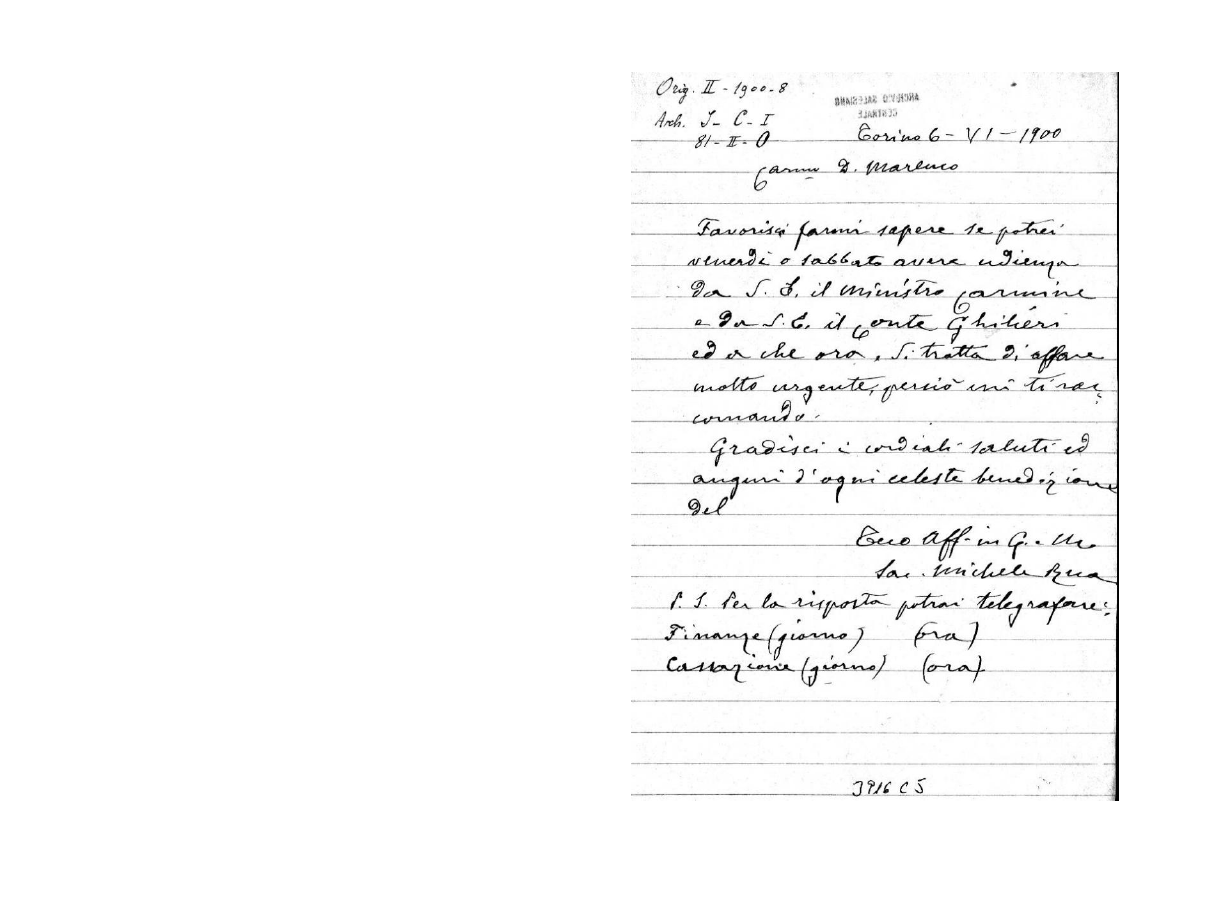 Orig. II - 1900 - 8
ARCHIVIO SALESIANO
CENTRALE
Arch. S - C - I
81 - II - O
Torino 6 - VI - 1900
Carmo D. Marenco
Favorisci farmi sapere se potrei
venerdì o sabbato avere udienza
da S. E. il ministro Carmine
e da S. E. il Conte Ghilieri
ed a che ora, Si tratta di affare
molto urgente, perciò mi ti rac
comando.
Gradisci i cordiali saluti ed
auguri d'ogni celeste benedizione
del
Tuo Aff. in G. e M.
Sac. Michele Rua
P. S. Per la risposta potrai telegrafare:
Finanze (giorno) (ora)
Cassazione (giorno) (ora).
3916 C 5